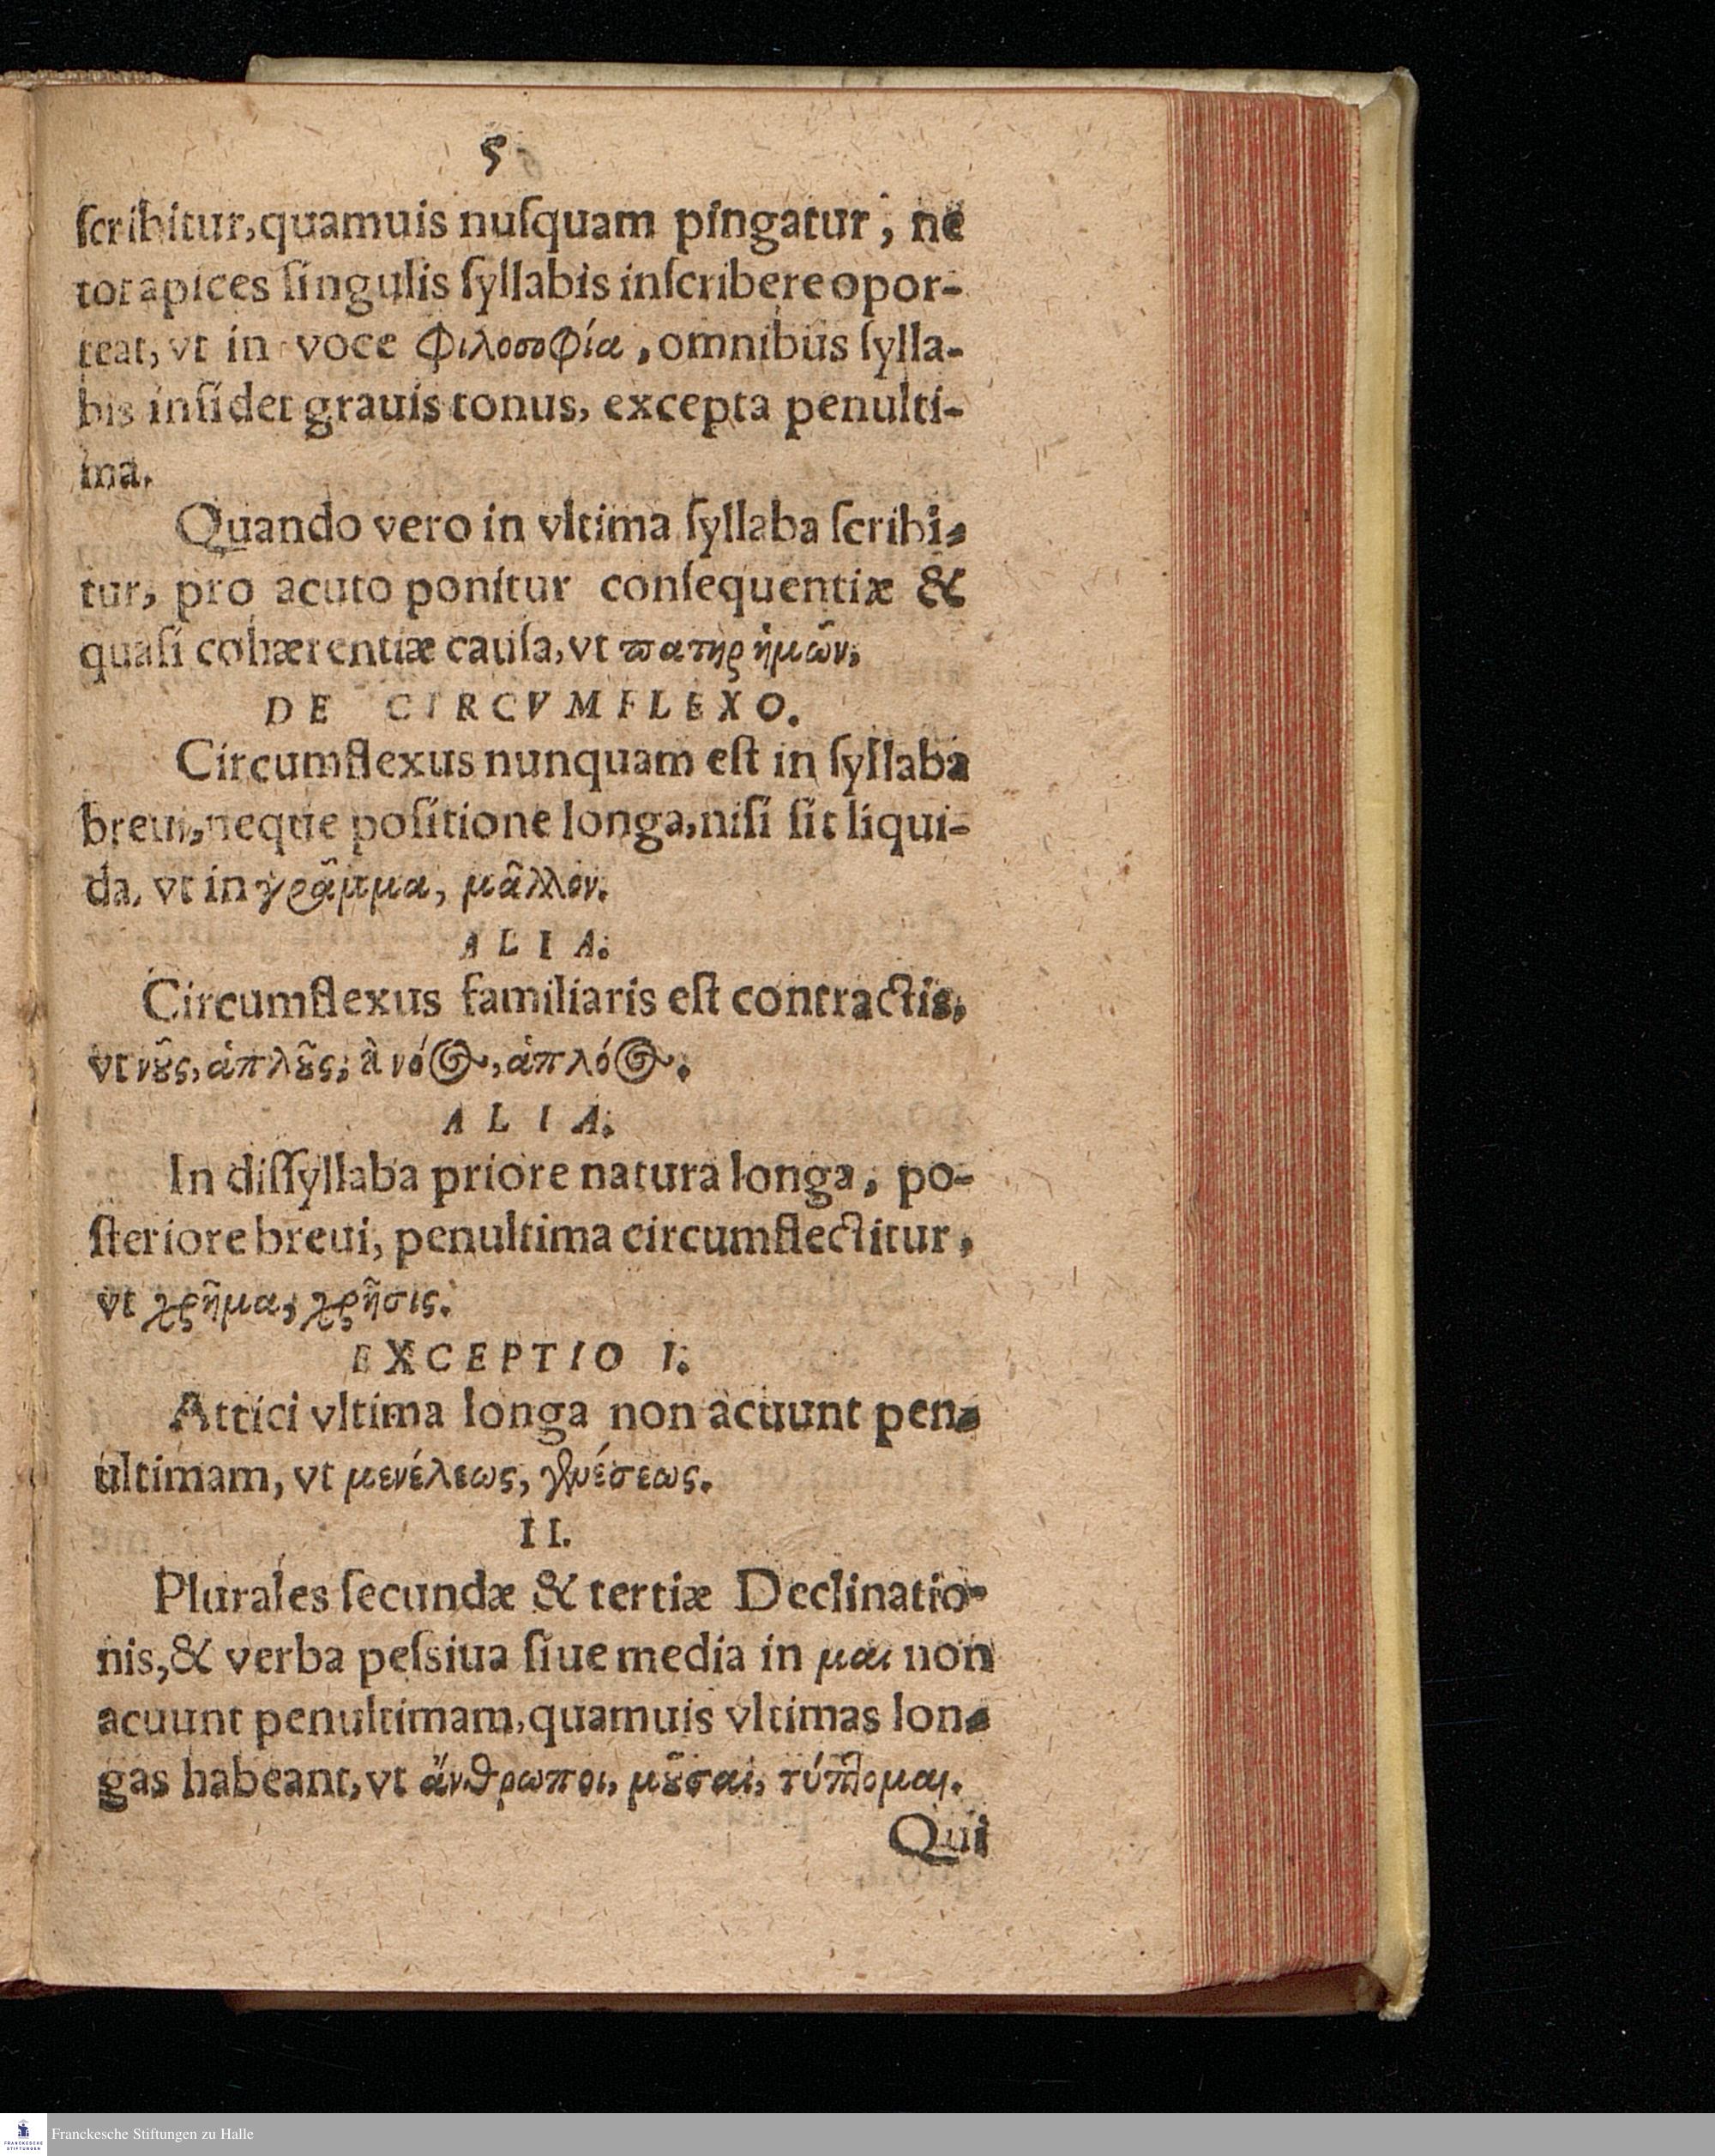 5
ſcribitur, quamuis nuſquam pingatur, ne
tot apices ſingulis ſyllabis inſcribere opor-
teat, vt in voce φιλοσοφία, omnibus ſylla-
bis inſidet grauis tonus, excepta penulti-
ma.
Quando vero in vltima ſyllaba ſcribi-
tur, pro acuto ponitur conſequentiæ &
quaſi cohærentiæ cauſa, vt πατηρ ἡμῶν,
DE CIRCVMFLEXO.
Circumflexus nunquam eſt in ſyllaba
breui, neque poſitione longa, niſi ſit liqui-
da, vt in γρᾶμμα, μᾶλλον.
ALIA.
Circumflexus familiaris eſt contractis,
vt νȣ͂ς, ἁπλȣ͂ς, à νόος, ἁπλόος.
ALIA.
In diſſyllaba priore natura longa, po-
ſteriore breui, penultima circumflectitur,
vt χρῆμα, χρῆσις.
EXCEPTIO I.
Attici vltima longa non acuunt pen-
ultimam, vt μενέλεως, γενέσεως.
II.
Plurales ſecundæ & tertiæ Declinatio-
nis, & verba peſsiua ſiue media in μαι non
acuunt penultimam, quamuis vltimas lon-
gas habeant, vt ἄνθρωποι, μȣ͂σαι, τύπτομαι.
Qui
FRANCKESCHE
STIFTUNGEN
Franckesche Stiftungen zu Halle